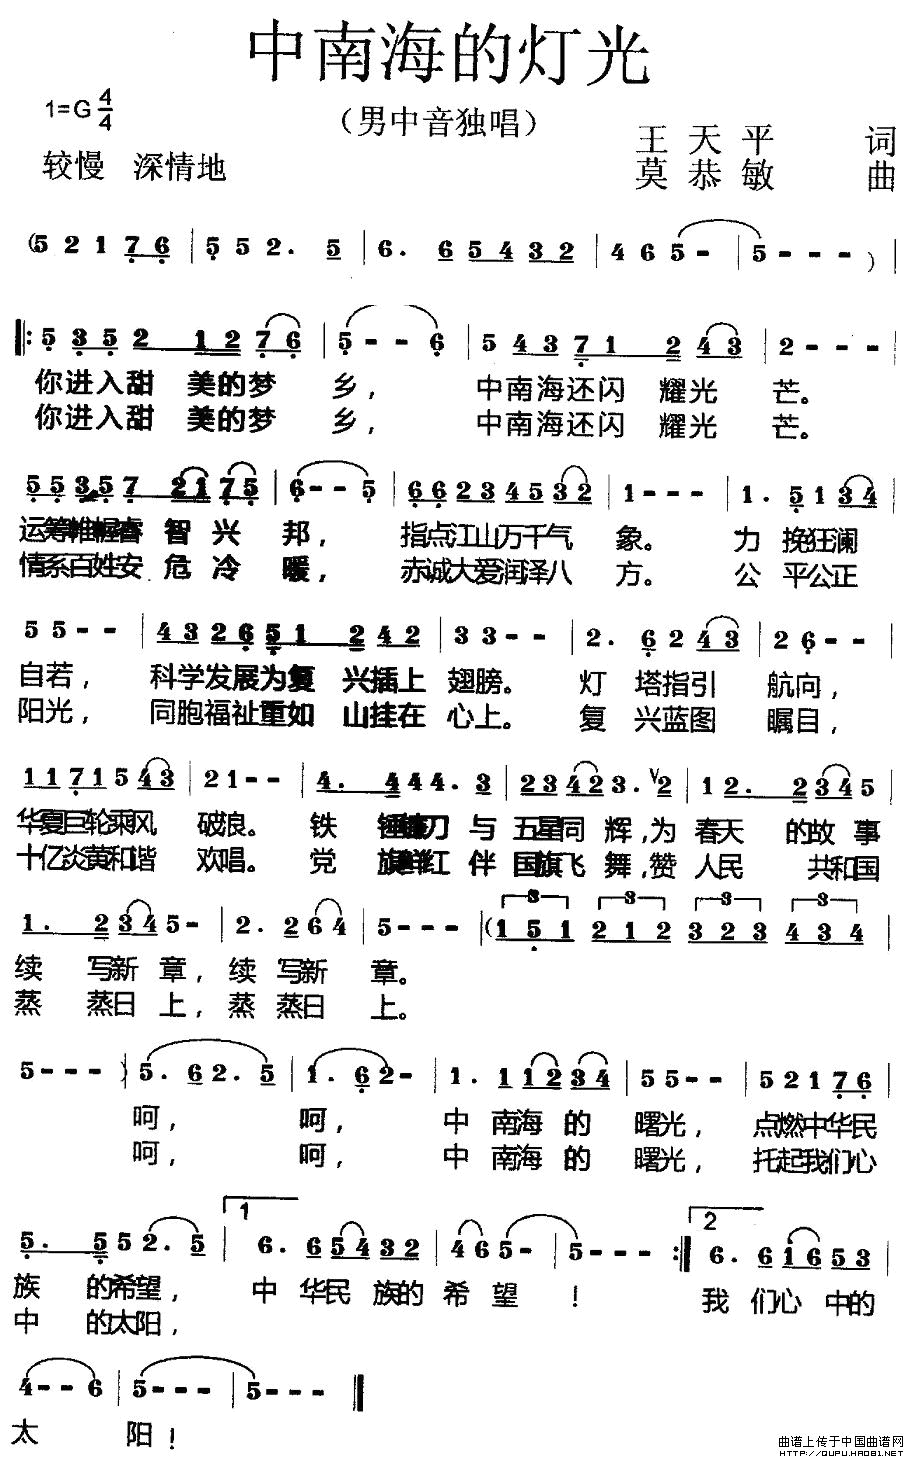 中南海的灯光
1=G 4/4
（男中音独唱）
较慢 深情地
王天平 词
莫恭敏 曲
(5 2 1 7 6 | 5 5 2. 5 | 6. 6 5 4 3 2 | 4 6 5 - | 5 - - - ) |
|: 5 3 5 2 1 2 7 6 | 5 - - 6 | 5 4 3 7 1 2 4 3 | 2 - - - |
你进入甜 美的梦 乡， 中南海还闪 耀光 芒。
你进入甜 美的梦 乡， 中南海还闪 耀光 芒。
5 5 3 5 7 2 1 7 5 | 6 - - 5 | 6 6 2 3 4 5 3 2 | 1 - - - | 1. 5 1 3 4 |
运筹帷幄睿 智 兴 邦， 指点江山万千气 象。 力 挽狂澜
情系百姓安 危 冷 暖， 赤诚大爱润泽八 方。 公 平公正
5 5 - - | 4 3 2 6 5 1 2 4 2 | 3 3 - - | 2. 6 2 4 3 | 2 6 - - |
自若， 科学发展为复 兴插上 翅膀。 灯 塔指引 航向，
阳光， 同胞福祉重如 山挂在 心上。 复 兴蓝图 瞩目，
1 1 7 1 5 4 3 | 2 1 - - | 4. 4 4 4. 3 | 2 3 4 2 3. V 2 | 1 2. 2 3 4 5 |
华夏巨轮乘风 破浪。 铁 锤镰刀 与 五星同 辉，为 春天 的故 事
十亿炎黄和谐 欢唱。 党 旗鲜红 伴 国旗飞 舞，赞 人民 共和国
1. 2 3 4 5 - | 2. 2 6 4 | 5 - - - | (1 5 1 2 1 2 3 2 3 4 3 4 |
3 3 3 3
续 写新 章，续 写新 章。
蒸 蒸日 上，蒸 蒸日 上。
5 - - - ) | 5. 6 2. 5 | 1. 6 2 - | 1. 1 1 2 3 4 | 5 5 - - | 5 2 1 7 6 |
呵， 呵， 中 南海 的 曙光， 点燃中华民
呵， 呵， 中 南海 的 曙光， 托起我们心
5. 5 5 2. 5 | 1 6. 6 5 4 3 2 | 4 6 5 - | 5 - - - :| 2 6. 6 1 6 5 3 |
族 的希望， 中 华民 族的 希 望 ！ 我 们心 中的
中 的太阳，
4 - - 6 | 5 - - - | 5 - - - ||
太 阳！
曲谱上传于中国曲谱网
HTTP://QUPU.HAO81.NET